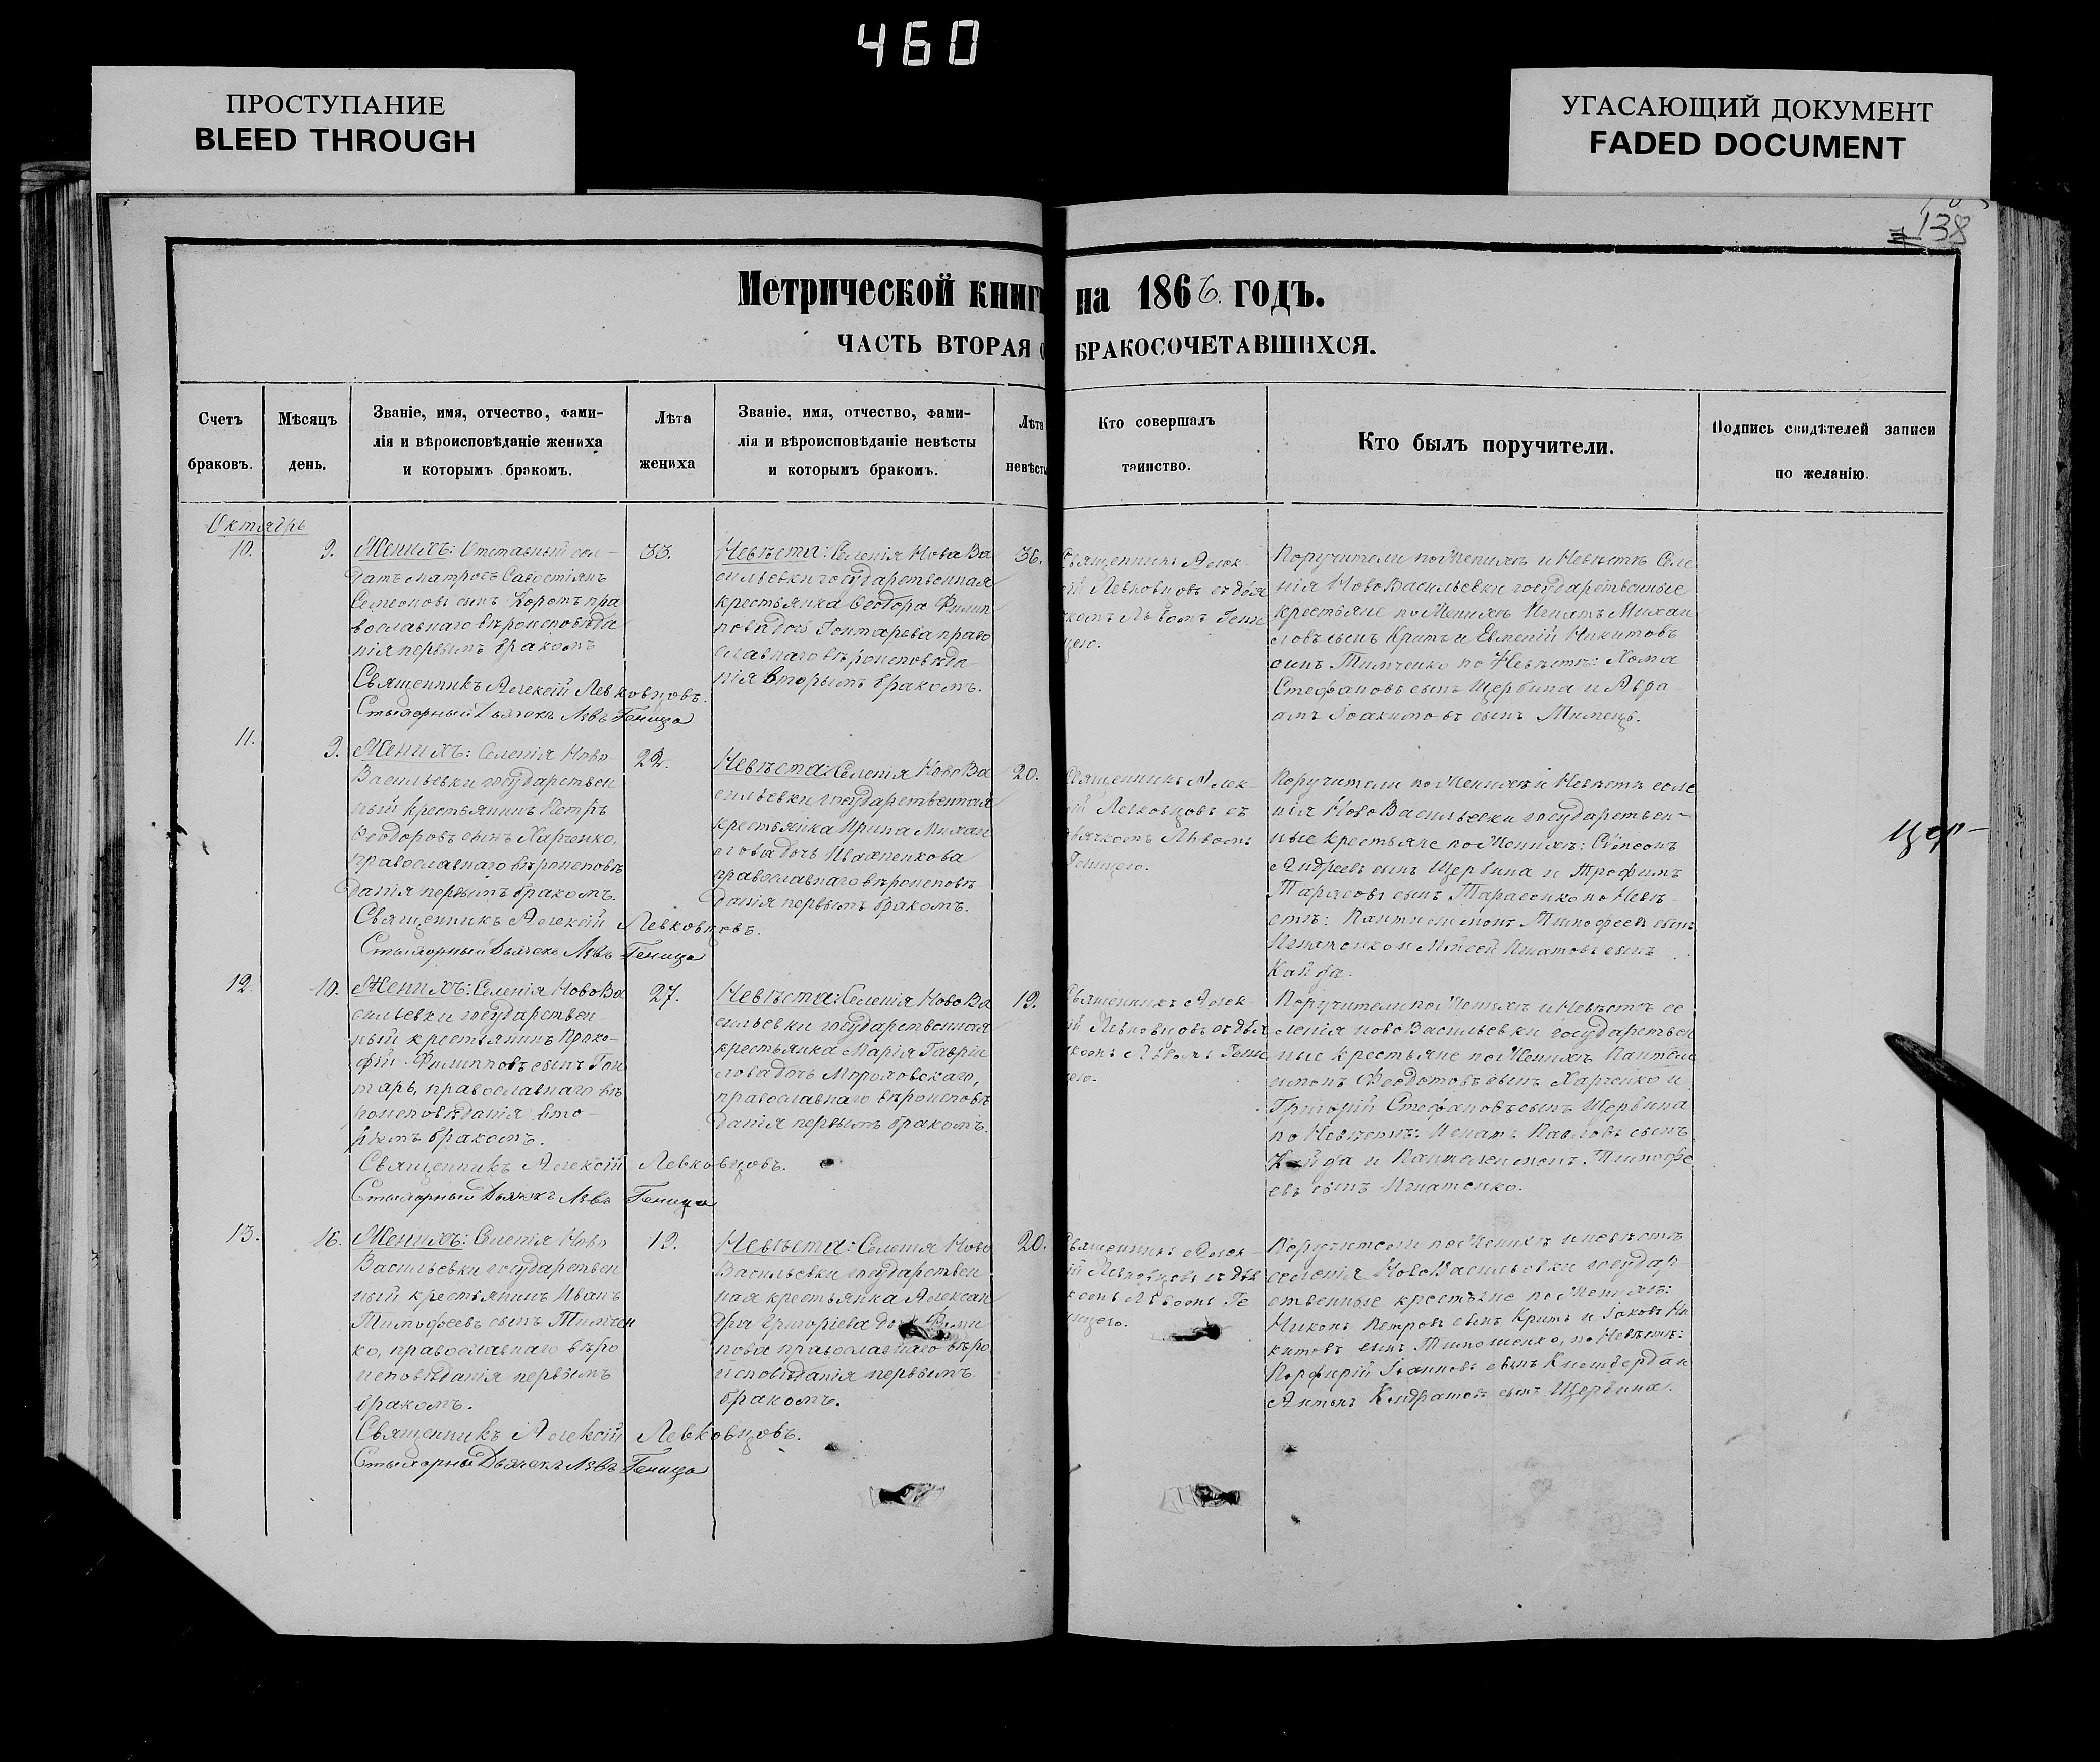 460
ПРОСТУПАНИЕ
BLEED THROUGH
УГАСАЮЩИЙ ДОКУМЕНТ
FADED DOCUMENT
138
Метрической книги на 1866. годъ.
ЧАСТЬ ВТОРАЯ О БРАКОСОЧЕТАВШИХСЯ.
Счетъ
браковъ.
Мѣсяцъ
день.
Званіе, имя, отчество, фами-
лія и вѣроисповѣданіе жениха
и которымъ бракомъ.
Лѣта
жениха
Званіе, имя, отчество, фами-
лія и вѣроисповѣданіе невѣсты
и которымъ бракомъ.
Лѣта
невѣсты
Кто совершалъ
таинство.
Кто былъ поручители.
Подпись свидѣтелей записи
по желанію.
Октябрь
10.
9.
Женихъ: Отставный сол-
датъ матросъ Савостіянъ
Семеоновъ сынъ Коротъ пра
вославнаго вѣроисповѣда
нія первымъ бракомъ
33.
Невѣста: Селенія Ново Ва
сильевки государственная
крестьянка Ѳеодора Филип
пова дочь Гонтарева право
славнаго вѣроисповѣда-
нія вторымъ бракомъ.
36.
Священникъ Алек-
ій Левковцовъ съ дья
комъ Львомъ Гени
цею.
Поручители по Женихѣ и Невѣстѣ Селе
нія НовоВасильевки государственные
крестьяне по Женихѣ Игнатъ Михаи
ловъ сынъ Критъ и Евменій Никитовъ
сынъ Тимченко по Невѣстѣ: Хома
Стефановъ сынъ Щербина и Авра-
амъ Іоакимовъ сынъ
Священникъ Алексій Левковцовъ.
Стихорный Дьячекъ Левъ Геница
11.
9.
Женихъ: Селенія Ново
Васильевки государствен
ный крестьянинъ Петръ
Ѳеодоровъ сынъ Харченко,
православнаго вѣроисповѣ
данія первымъ бракомъ.
22.
Невѣста: Селенія Ново Ва
сильевки государственная
крестьянка Ирина Михаи
лова дочь Ивахненкова
православнаго вѣроисповѣ
данія первымъ бракомъ.
20.
Священникъ Алек-
ій Левковцовъ съ
дьячкомъ Львомъ
Геницею.
Поручители по Женихѣ и Невѣстѣ селе
нія НовоВасильевки государствен-
ные крестьяне по Женихѣ: Симеонъ
Андреевъ сынъ Щербина и Трофимъ
Тарасовъ сынъ Тарасенко по Невѣ
стѣ: Пантилимонъ Тимофеевъ сынъ
Игнатенко и Мойсей Игнатовъ сынъ
Кайда.
цер-
Священникъ Алексій Левковцовъ.
Стихорный Дьячекъ Левъ Геница
12.
10.
Женихъ: Селенія НовоВа
сильевки государствен-
ный крестьянинъ Проко-
фій Филипповъ сынъ Гон
тарь, православнаго вѣ
роисповѣданія вто-
рымъ бракомъ.
27.
Невѣста: Селенія Ново Ва
сильевки государственная
крестьянка Марія Гаврии
лова дочь
православнаго вѣроисповѣ
данія первымъ бракомъ.
19.
Священникъ Алек-
ій Левковцовъ съ дья
комъ Львомъ Гени
цею.
Поручители по Женихѣ и Невѣстѣ се
ленія новоВасильевки государствен
ные крестьяне по Женихѣ Пантели
имонъ Ѳеодотовъ сынъ Харченко и
Григорій Стефановъ сынъ Щербина
по Невѣстѣ: Игнатъ Павловъ сынъ
Кайда и Пантелимонъ Тимофе
евъ сынъ Игнатенко.
Священникъ Алексій Левковцовъ.
Стихорный Дьячекъ Левъ Геница
13.
16.
Женихъ: Селенія Ново
Васильевки государствен
ный крестьянинъ Иванъ
Тимофеевъ сынъ Тимчен
ко, православнаго вѣро
исповѣданія первымъ
бракомъ.
19.
Невѣста: Селенія Ново
Васильевки государствен
ная крестьянка Алексан
дра Григоріева дочь
православнаго вѣро
исповѣданія первымъ
бракомъ.
20.
Священникъ Алек-
ій Левковцовъ съ дья
комъ Львомъ Ге
ницею.
Поручители по Женихѣ и невѣстѣ
селенія НовоВасильевки государ
ственные крестьяне по Женихѣ:
Никонъ Петровъ сынъ Критъ и Іаковъ Ни
китовъ сынъ Тимошенко, по Невѣстѣ:
Порфирій Іоанновъ сынъ
Антонъ Кондратовъ сынъ Щербина.
Священникъ Алексій Левковцовъ.
Стихорный Дьячекъ Левъ Геница